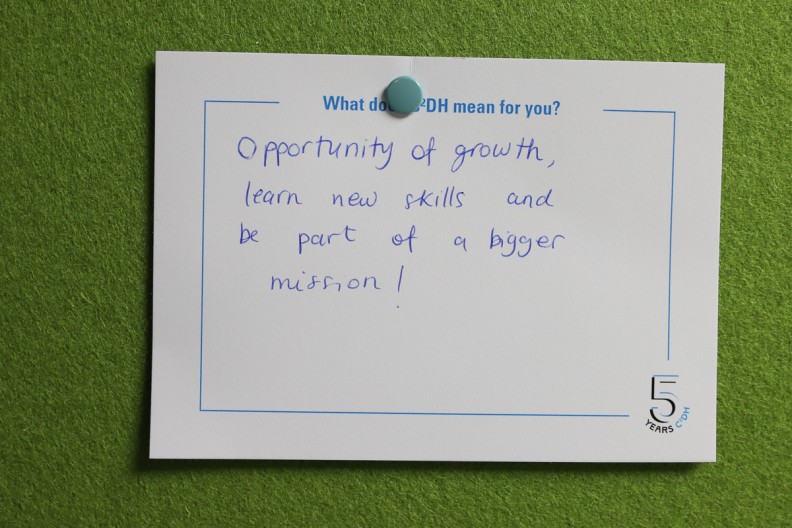 What do ²DH mean for you?
Opportunity of growth,
learn new skills and
be part of a bigger
mission!
5
YEARS C²DH